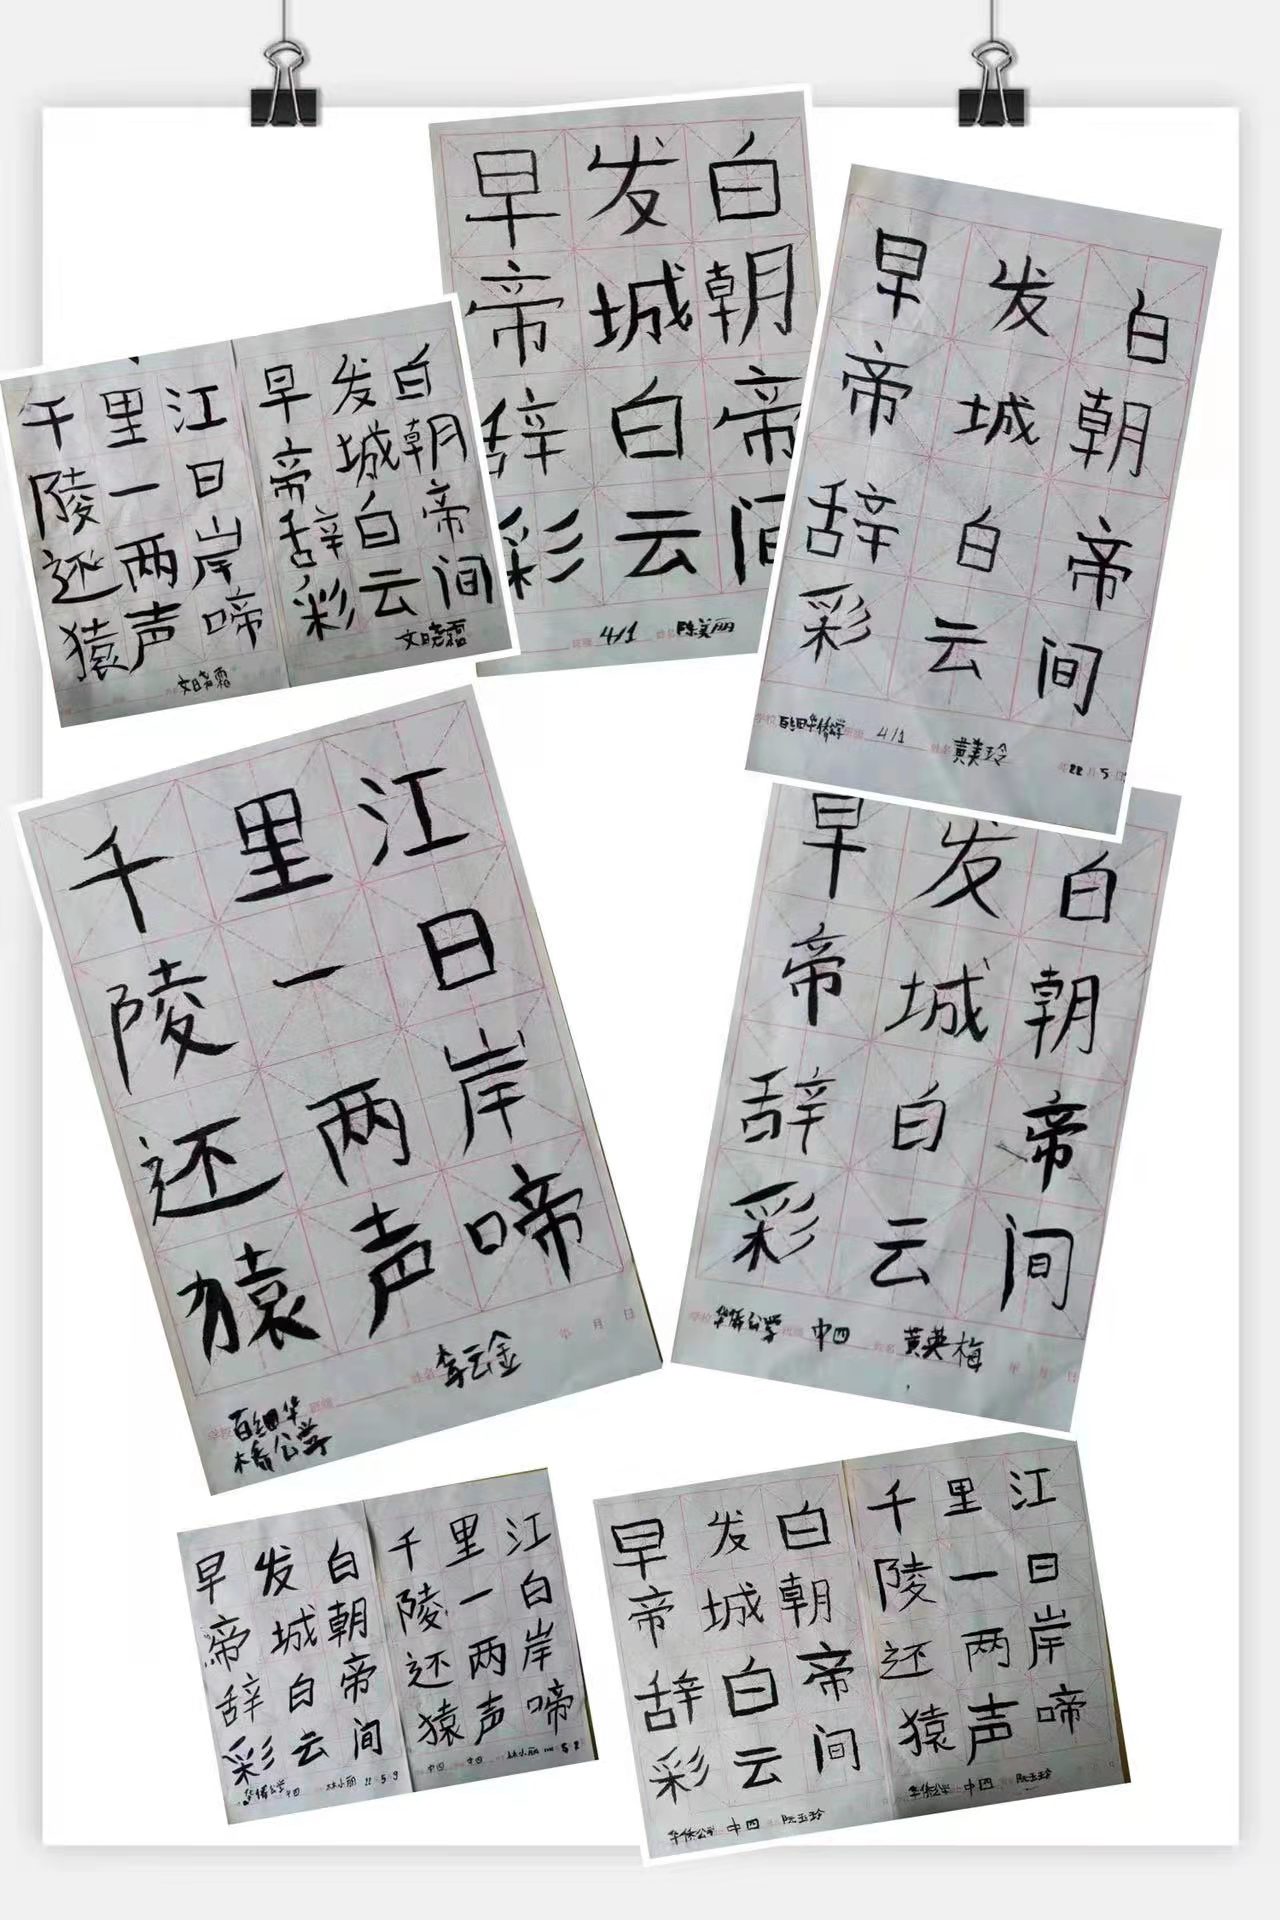 早发白
帝城朝
辞白帝
彩云间
班级 4/1 姓名 陈美丽
早发白
帝城朝
辞白帝
彩云间
学校 百细华侨公学 班级 4/1 姓名 黄美玲 22 月 5
千里江
陵一日
还两岸
猿声啼
文晓霜
早发白
帝城朝
辞白帝
彩云间
文晓霜
千里江
陵一日
还两岸
猿声啼
学校 百细华侨公学 班级 姓名 李云金 年 月 日
早发白
帝城朝
辞白帝
彩云间
学校 华侨公学 班级 中四 姓名 黄美梅 年 月 日
早发白
帝城朝
辞白帝
彩云间
华侨公学 中四 林小丽 22 5 9
千里江
陵一白
还两岸
猿声啼
中四 中四 林小丽
早发白
帝城朝
辞白帝
彩云间
华侨公学 中四 阮玉玲
千里江
陵一日
还两岸
猿声啼
华侨公学 中四 阮玉玲